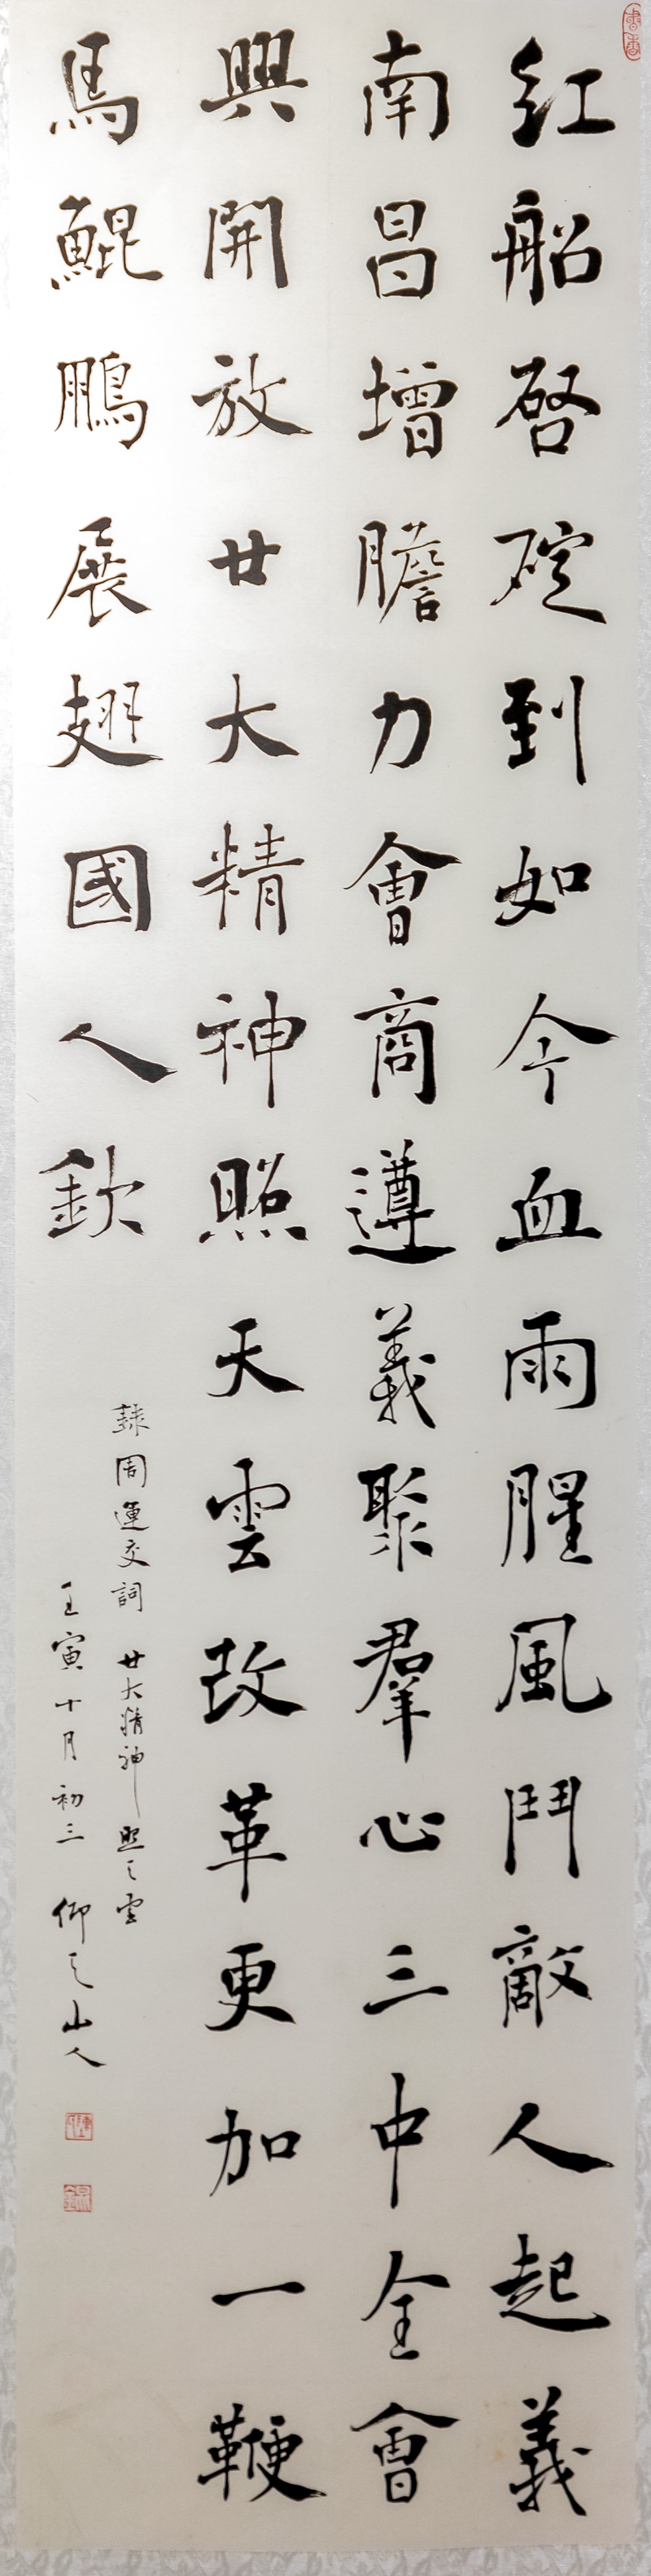 書香
紅船啓碇到如今血雨腥風鬥敵人起義
南昌增膽力會商遵義聚羣心三中全會
興開放廿大精神照天雲改革更加一鞭
馬鯤鵬展翅國人欽
錄周運交詞 廿大精神照天雲
壬寅十月初三 仰之山人